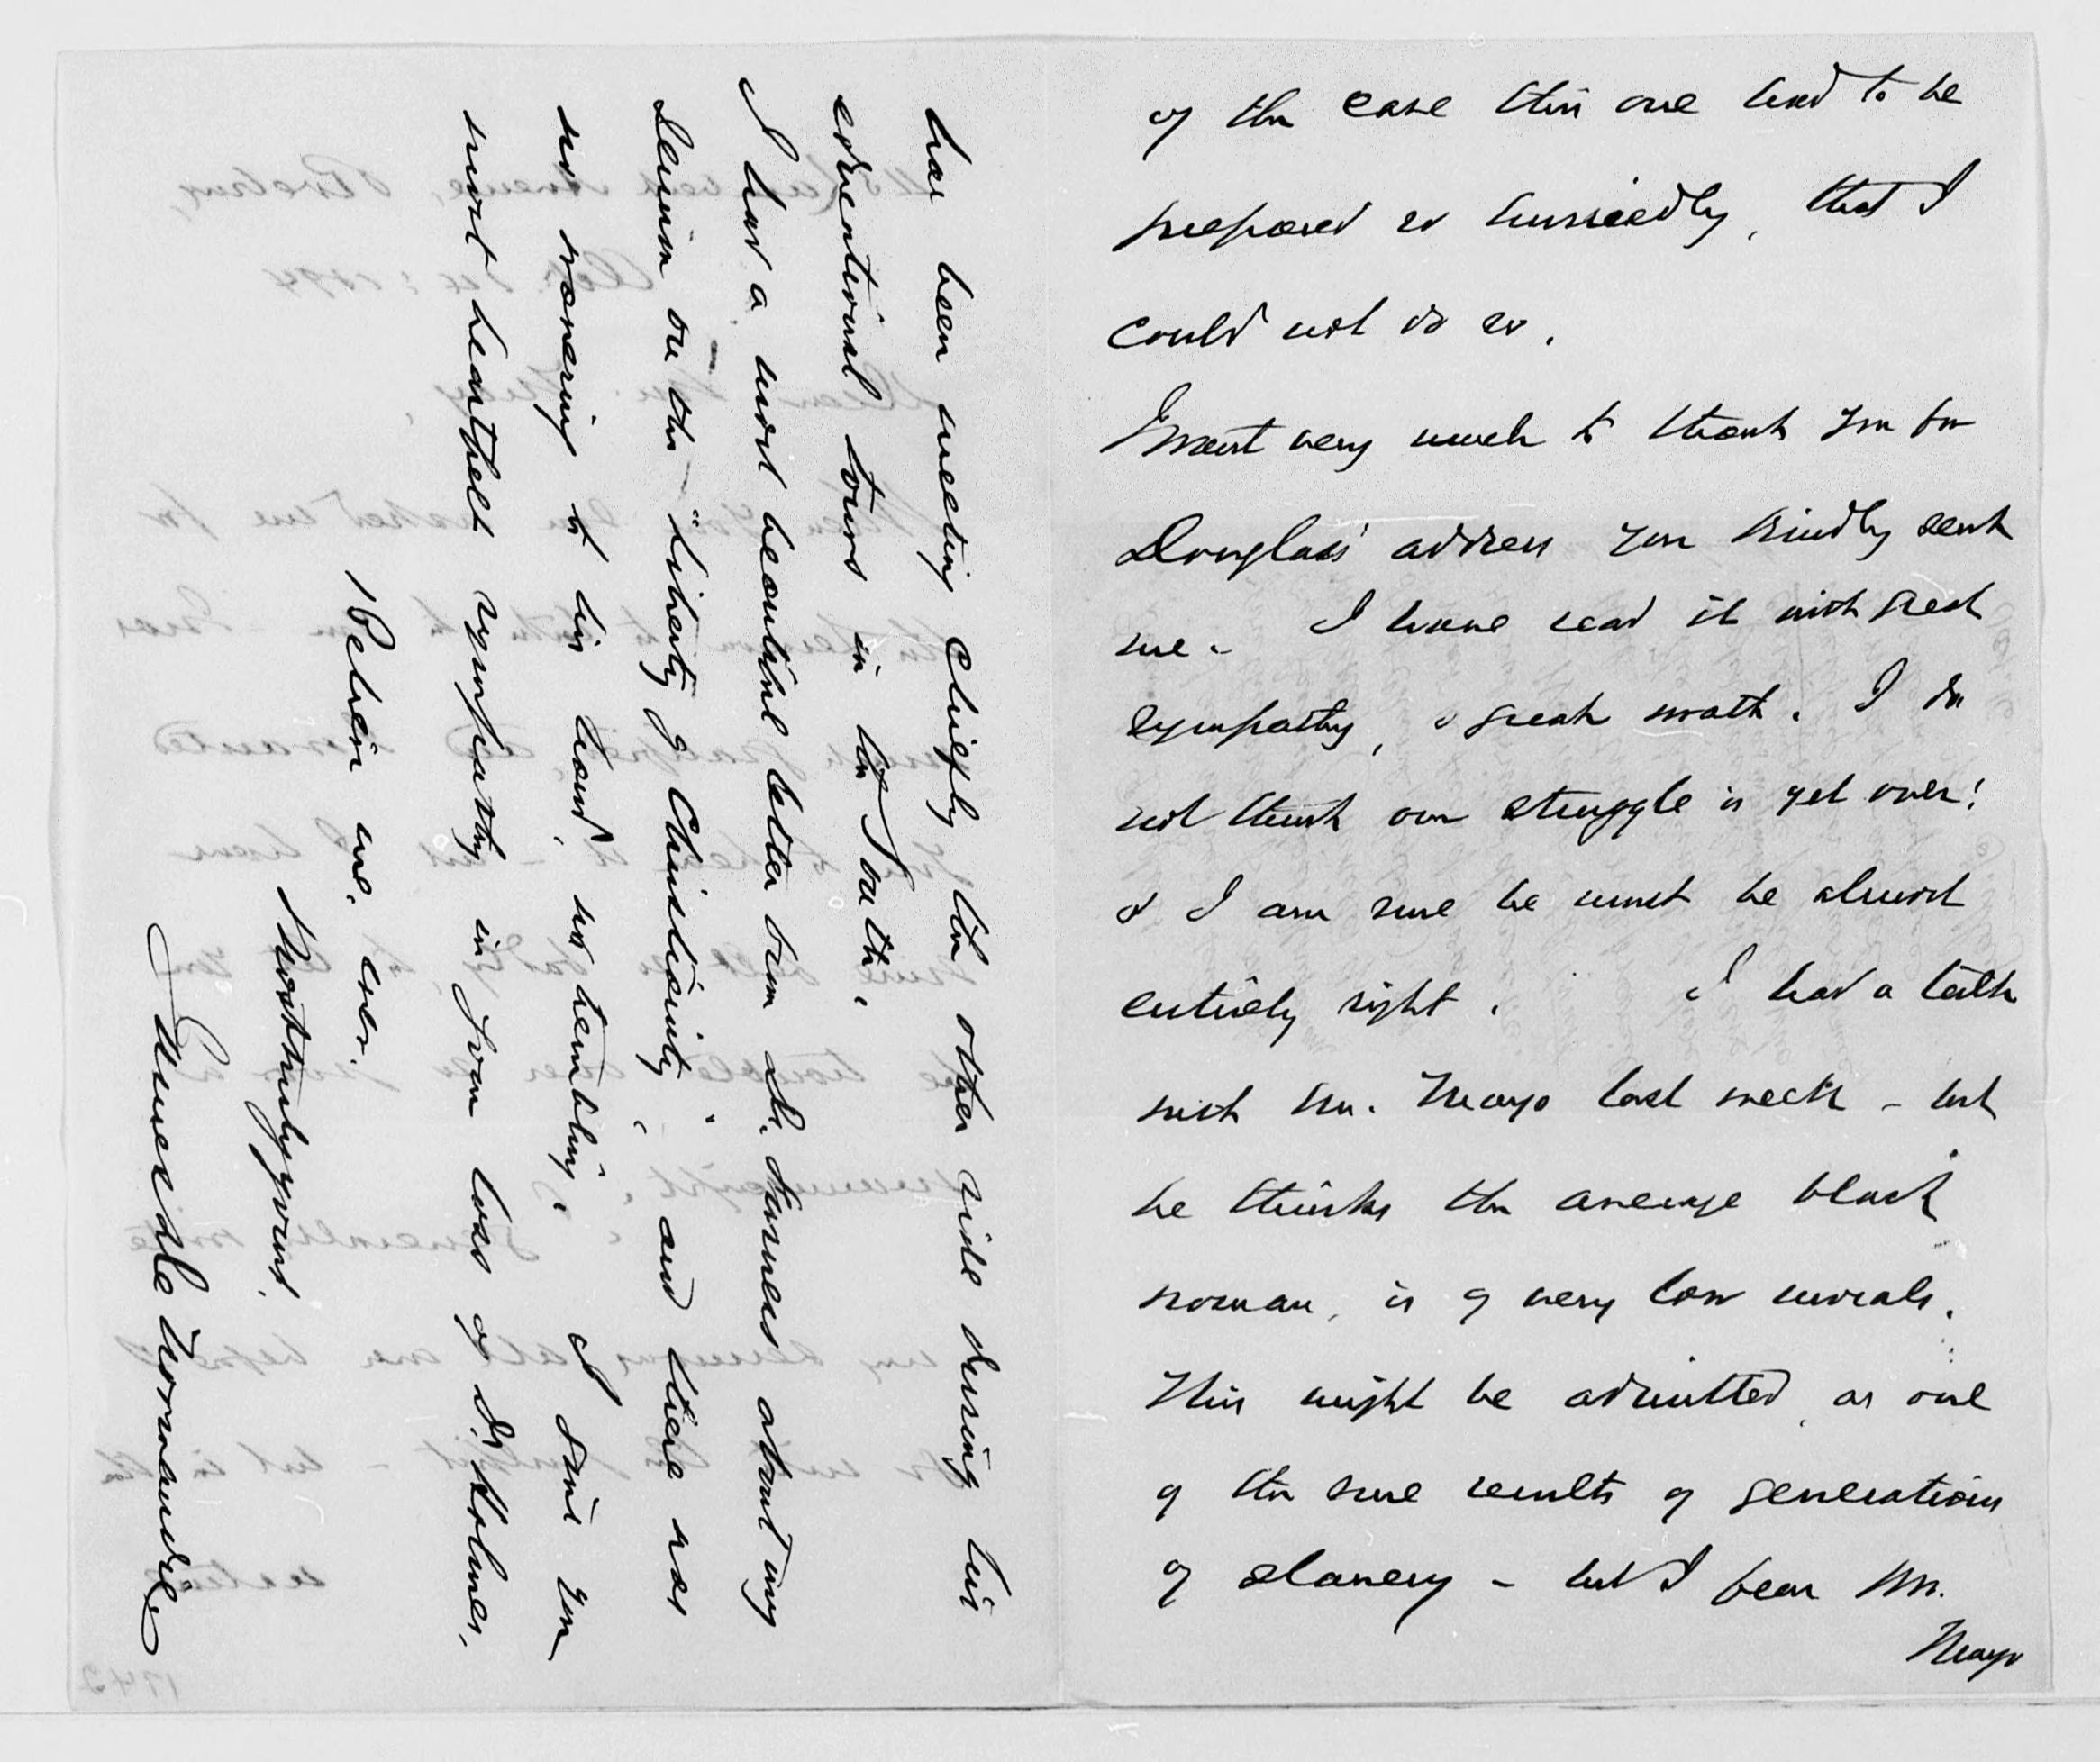 of the case this one had to be
prepared so hurriedly, that I
could not do so.
I want very much to thank you for
Douglass' address you kindly sent
me - I have read it with great
sympathy, & great wrath. I do
not think our struggle is yet over!
& I am sure he must be almost
entirely right. I had a talk
with Mr. Mayo last week - but
he thinks the average black
woman, is of very low morals.
This might be admitted, as one
of the sure results of generations
of slavery - but I fear Mr.
Mayo
has been meeting chiefly the other side during his
educational tours in the South.
I had a most beautiful letter from Dr. Furness about my
Sermon on the "Liberty of Christianity", and there was
no wavering of his hand, no trembling. I send you
most heartfelt sympathy in your loss of Dr. Holmes.
Believe me, ever.
Most truly yours.
James De Normandie